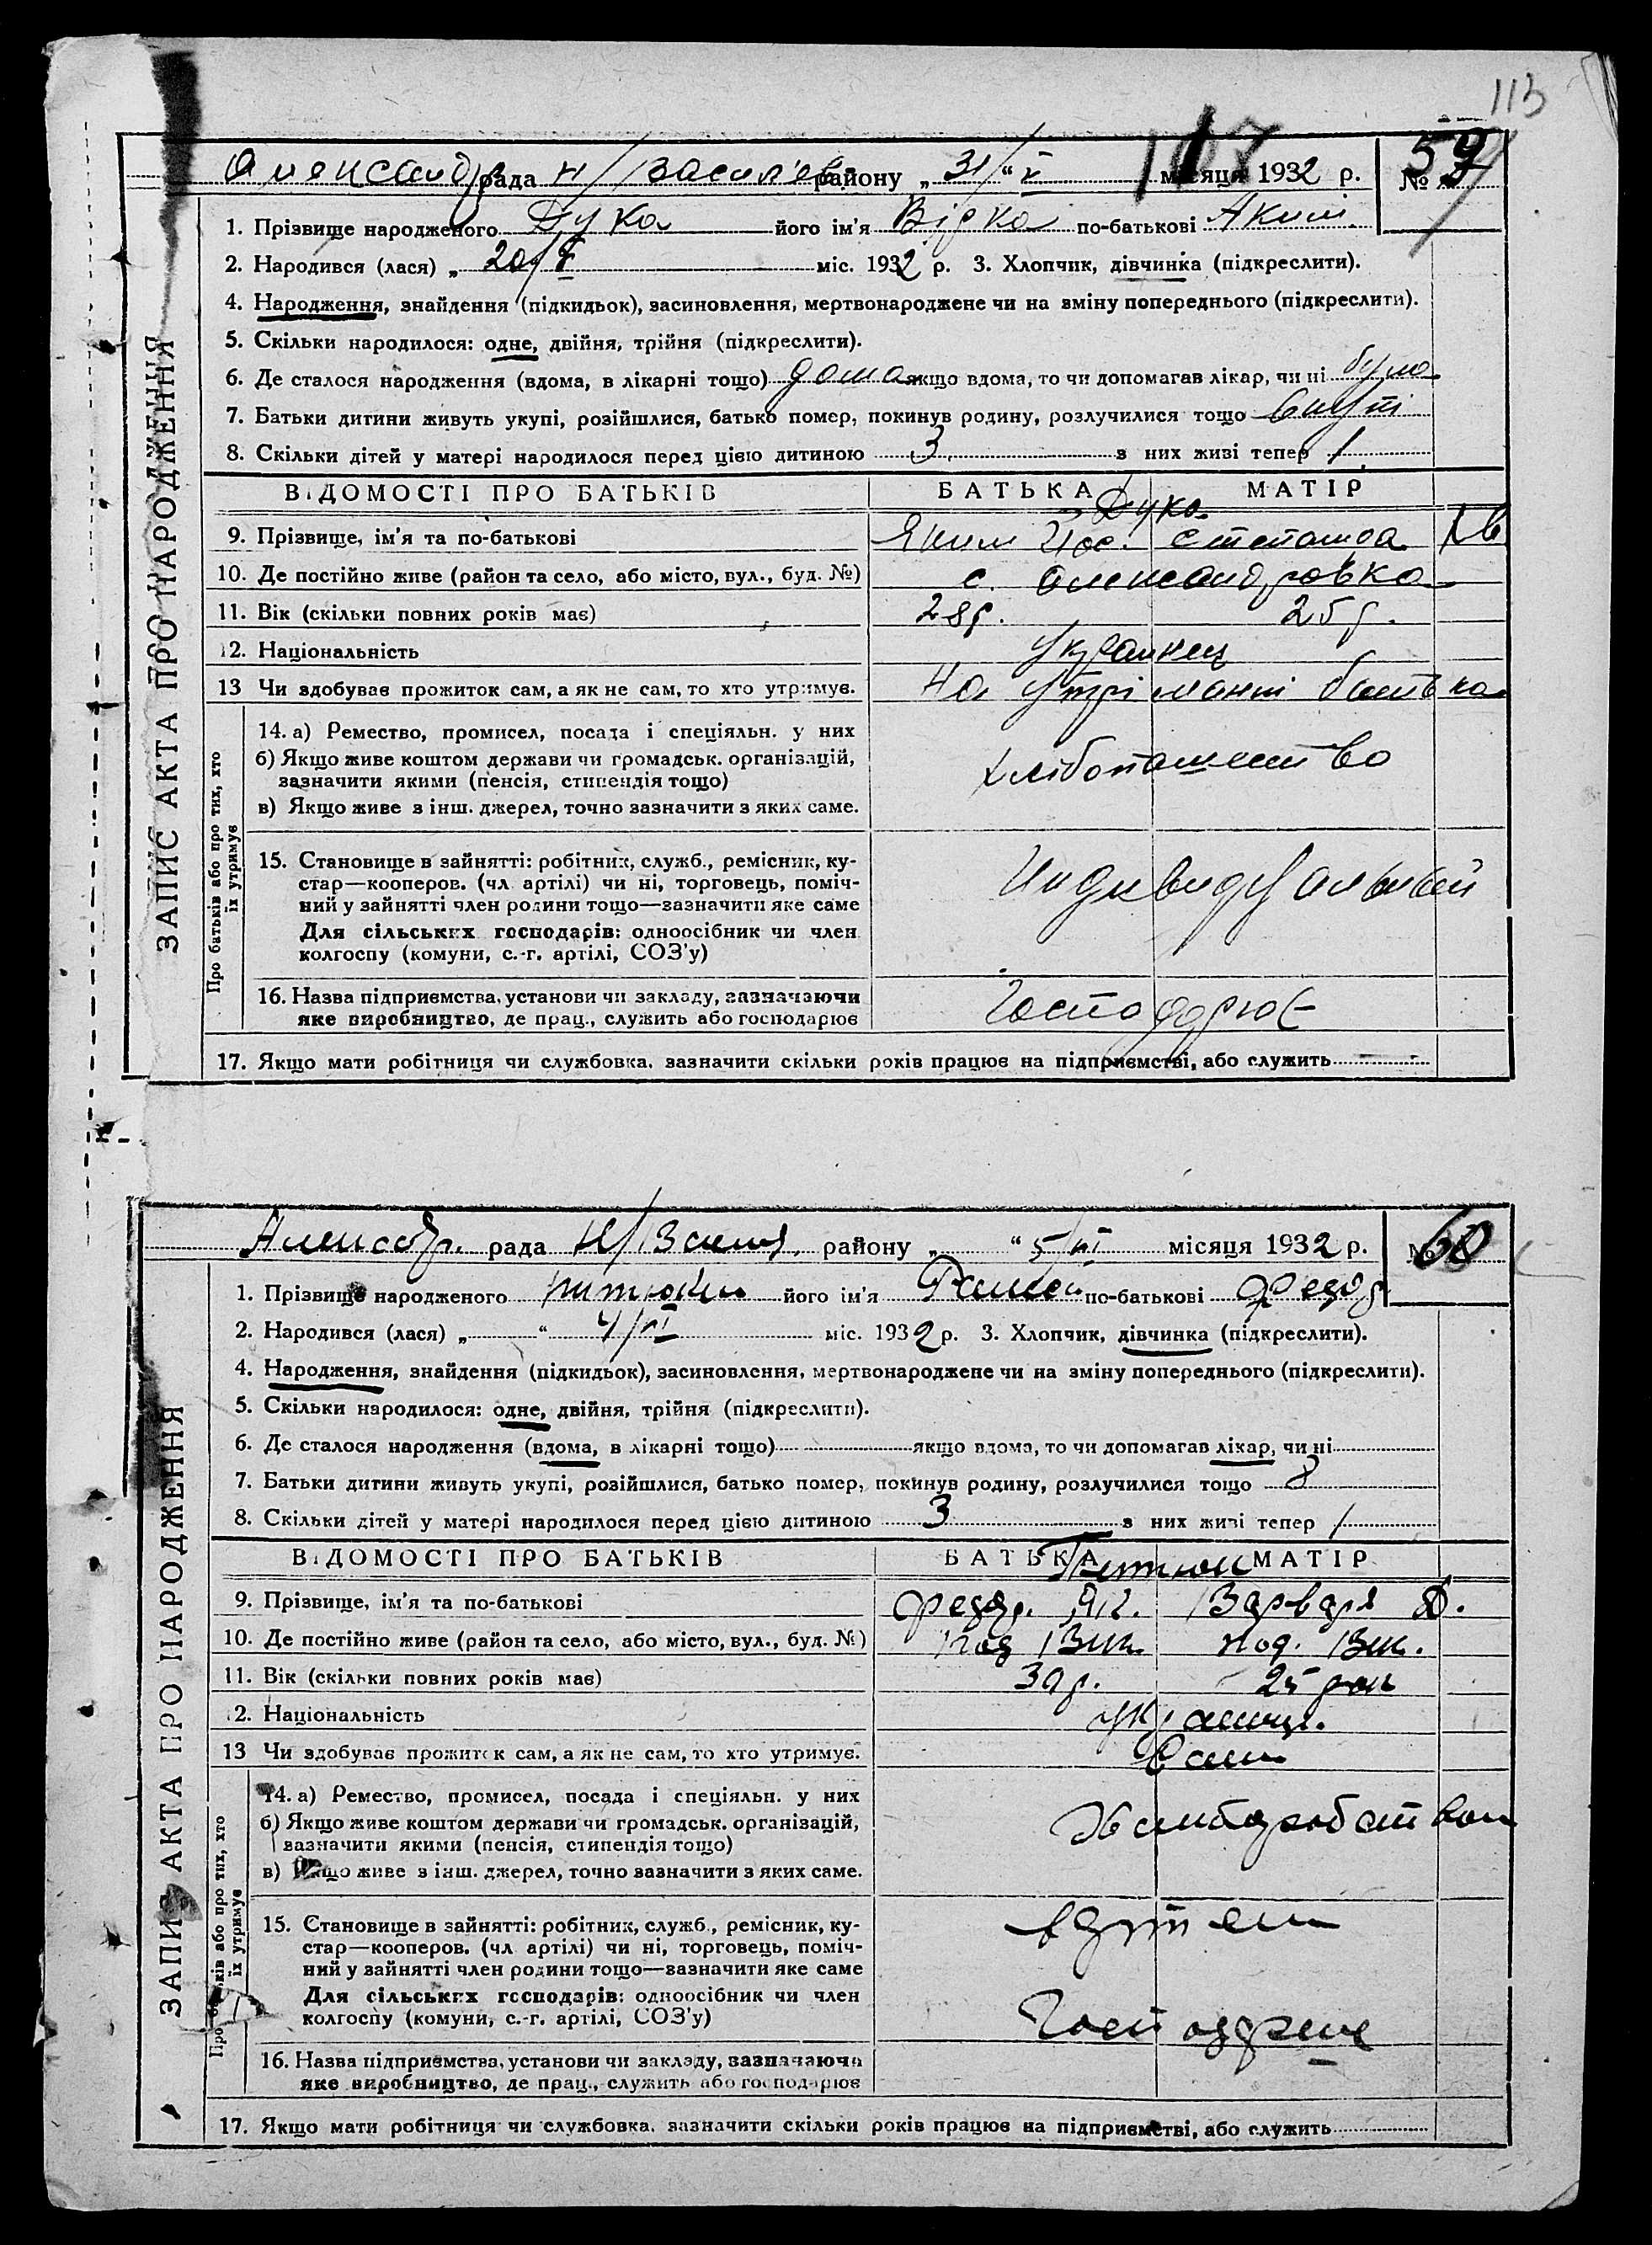 113
Александр рада Н/Василів району „ 31/V “ місяця 1932 р. № 59
1. Прізвище народженого Дука його ім'я Вірка по-батькові Аким.
2. Народився (лася) „ 20/V міс. 1932 р. 3. Хлопчик, дівчинка (підкреслити).
4. Народження, знайдення (підкидьок), засиновлення, мертвонароджене чи на зміну попереднього (підкреслити).
5. Скільки народилося: одне, двійня, трійня (підкреслити).
6. Де сталося народження (вдома, в лікарні тощо) дома якщо вдома, то чи допомагав лікар, чи ні
7. Батьки дитини живуть укупі, розійшлися, батько помер, покинув родину, розлучилися тощо вкупі
8. Скільки дітей у матері народилося перед цією дитиною 3 з них живі тепер 1
ВІДОМОСТІ ПРО БАТЬКІВ БАТЬКА МАТІР
Дука
9. Прізвище, ім'я та по-батькові Яким
10. Де постійно живе (район та село, або місто, вул., буд. №) с. Александровка
11. Вік (скільки повних років має) 28 р. 25 р.
12. Національність Украинец
13 Чи здобуває прожиток сам, а як не сам, то хто утримує. на утріманні батька
14. а) Ремество, промисел, посада і спеціяльн. у них
б) Якщо живе коштом держави чи громадськ. організацій,
зазначити якими (пенсія, стипендія тощо)
хлібопашество
в) Якщо живе з інш. джерел, точно зазначити з яких саме.
15. Становище в зайнятті: робітник, служб., ремісник, ку-
стар—кооперов. (чл. артілі) чи ні, торговець, поміч-
ний у зайнятті член родини тощо—зазначити яке саме
Индивидуальний
Для сільських господарів: одноосібник чи член
колгоспу (комуни, с.-г. артілі, СОЗ'у)
16. Назва підприємства, установи чи закладу, зазначаючи
яке виробництво, де прац., служить або господарює
Господарює
17. Якщо мати робітниця чи службовка, зазначити скільки років працює на підприємстві, або служить
ЗАПИС АКТА ПРО НАРОДЖЕННЯ
Про батьків або про тих, хто
їх утримує
Александр. рада Н/Васил. району „ “ 5/VI місяця 1932 р. № 60
1. Прізвище народженого його ім'я по-батькові Федор
2. Народився (лася) „ “ 4/VI міс. 1932 р. 3. Хлопчик, дівчинка (підкреслити).
4. Народження, знайдення (підкидьок), засиновлення, мертвонароджене чи на зміну попереднього (підкреслити).
5. Скільки народилося: одне, двійня, трійня (підкреслити).
6. Де сталося народження (вдома, в лікарні тощо) якщо вдома, то чи допомагав лікар, чи ні
7. Батьки дитини живуть укупі, розійшлися, батько помер, покинув родину, розлучилися тощо
8. Скільки дітей у матері народилося перед цією дитиною 3 з них живі тепер 1
ВІДОМОСТІ ПРО БАТЬКІВ БАТЬКА МАТІР
9. Прізвище, ім'я та по-батькові Федор. Варвара
10. Де постійно живе (район та село, або місто, вул., буд. №)
11. Вік (скільки повних років має) 30 р. 25 рок
12. Національність українці.
13 Чи здобуває прожиток сам, а як не сам, то хто утримує. Сам
14. а) Ремество, промисел, посада і спеціяльн. у них
б) Якщо живе коштом держави чи громадськ. організацій,
зазначити якими (пенсія, стипендія тощо)
в) Якщо живе з інш. джерел, точно зазначити з яких саме.
15. Становище в зайнятті: робітник, служб., ремісник, ку-
стар—кооперов. (чл. артілі) чи ні, торговець, поміч-
ний у зайнятті член родини тощо—зазначити яке саме
Для сільських господарів: одноосібник чи член
колгоспу (комуни, с.-г. артілі, СОЗ'у)
16. Назва підприємства, установи чи закладу, зазначаючи
яке виробництво, де прац., служить або господарює
17. Якщо мати робітниця чи службовка, зазначити скільки років працює на підприємстві, або служить
ЗАПИС АКТА ПРО НАРОДЖЕННЯ
Про батьків або про тих, хто
їх утримує